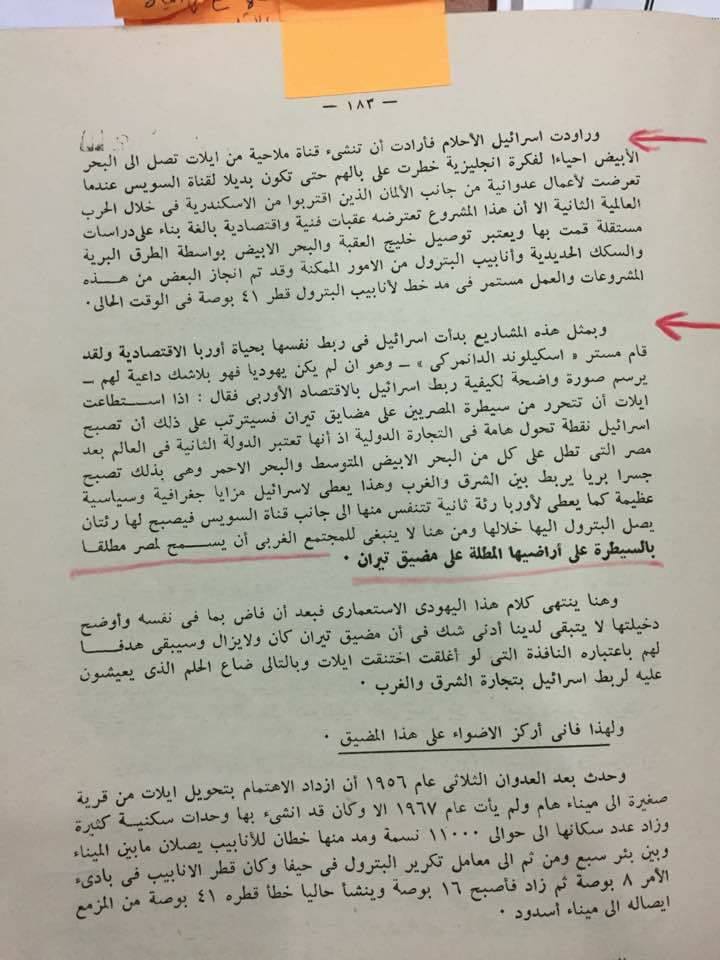 — ١٨٣ —
وراودت اسرائيل الأحلام فأرادت أن تنشىء قناة ملاحية من ايلات تصل الى البحر
الأبيض احياءا لفكرة انجليزية خطرت على بالهم حتى تكون بديلا لقناة السويس عندما
تعرضت لأعمال عدوانية من جانب الألمان الذين اقتربوا من الاسكندرية فى خلال الحرب
العالمية الثانية الا أن هذا المشروع تعترضه عقبات فنية واقتصادية بالغة بناء على دراسات
مستقلة قمت بها ويعتبر توصيل خليج العقبة والبحر الابيض بواسطة الطرق البرية
والسكك الحديدية وأنابيب البترول من الامور الممكنة وقد تم انجاز البعض من هـــذه
المشروعات والعمل مستمر فى مد خط لأنابيب البترول قطر ٤١ بوصة فى الوقت الحالى ·
وبمثل هذه المشاريع بدأت اسرائيل فى ربط نفسها بحياة أوربا الاقتصادية ولقد
قام مستر « اسكيلوند الدانمركى » — وهو ان لم يكن يهوديا فهو بلاشك داعية لهم —
يرسم صورة واضحة لكيفية ربط اسرائيل بالاقتصاد الأوربى فقال : اذا اســـتطاعت
ايلات أن تتحرر من سيطرة المصريين على مضايق تيران فسيترتب على ذلك أن تصبح
اسرائيل نقطة تحول هامة فى التجارة الدولية اذ أنها تعتبر الدولة الثانية فى العالم بعد
مصر التى تطل على كل من البحر الابيض المتوسط والبحر الاحمر وهى بذلك تصبح
جسرا بريا يربط بين الشرق والغرب وهذا يعطى لاسرائيل مزايا جغرافية وسياسية
عظيمة كما يعطى لأوربا رئة ثانية تتنفس منها الى جانب قناة السويس فيصبح لها رئتان
يصل البترول اليها خلالها ومن هنا لا ينبغى للمجتمع الغربى أن يســـمح لمصر مطلقـا
بالسيطرة على أراضيها المطلة على مضيق تيران ·
وهنا ينتهى كلام هذا اليهودى الاستعمارى فبعد أن فاض بما فى نفسه وأوضح
دخيلتها لا يتبقى لدينا أدنى شك فى أن مضيق تيران كان ولايزال وسيبقى هدفـــا
لهم باعتباره النافذة التى لو أغلقت اختنقت ايلات وبالتالى ضاع الحلم الذى يعيشون
عليه لربط اسرائيل بتجارة الشرق والغرب ·
ولهذا فانى أركز الاضواء على هذا المضيق ·
وحدث بعد العدوان الثلاثى عام ١٩٥٦ أن ازداد الاهتمام بتحويل ايلات من قرية
صغيرة الى ميناء هام ولم يأت عام ١٩٦٧ الا وكان قد انشىء بها وحدات سكنيـة كثيرة
وزاد عدد سكانها الى حوالى ١١٠٠٠ نسمة ومد منها خطان للأنابيب يصلان مابين الميناء
وبين بئر سبع ومن ثم الى معامل تكرير البترول فى حيفا وكان قطر الانابيب فى بادىء
الأمر ٨ بوصة ثم زاد فأصبح ١٦ بوصة وينشأ حاليا خطأ قطره ٤١ بوصة من المزمع
ايصاله الى ميناء أسدود ·